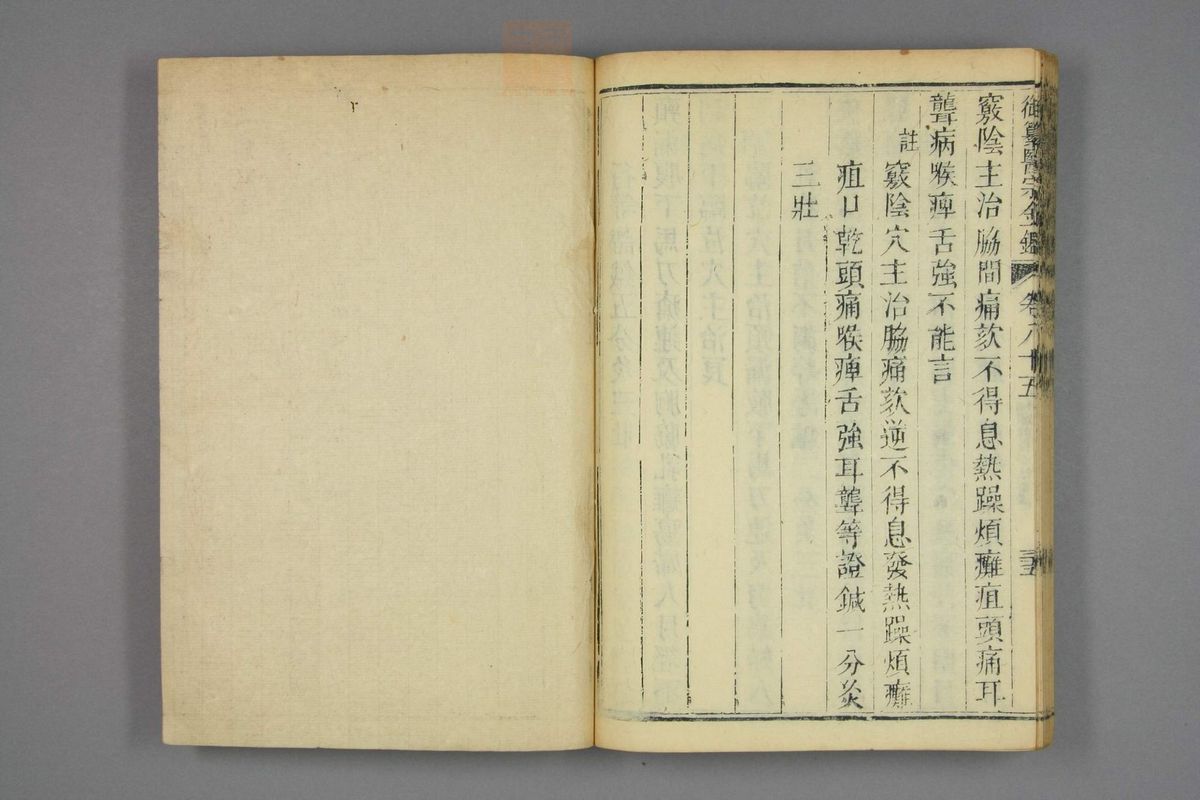 御纂醫宗金鑑 卷八十五
竅陰主治脇間痛欬不得息熱躁煩癰疽頭痛耳
聾病喉痺舌強不能言
註 竅陰穴主治脇痛欬逆不得息發熱躁煩癰
疽口乾頭痛喉痺舌強耳聾等證鍼一分灸
三壯